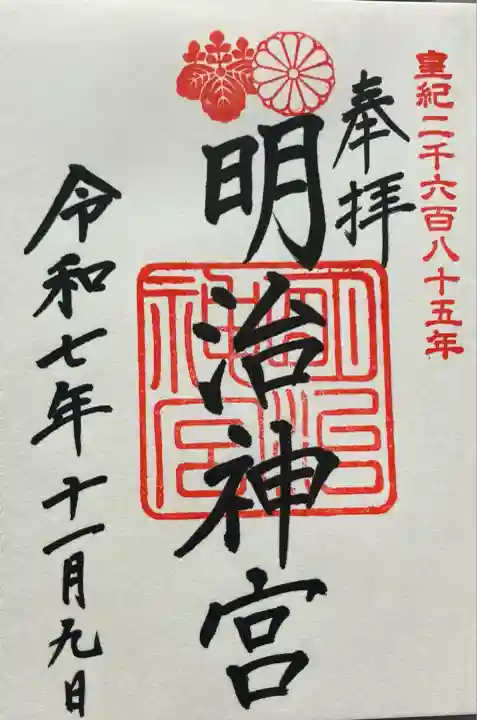 皇紀二千六百八十五年
奉拝
明治神宮
明治神宮
令和七年十一月九日